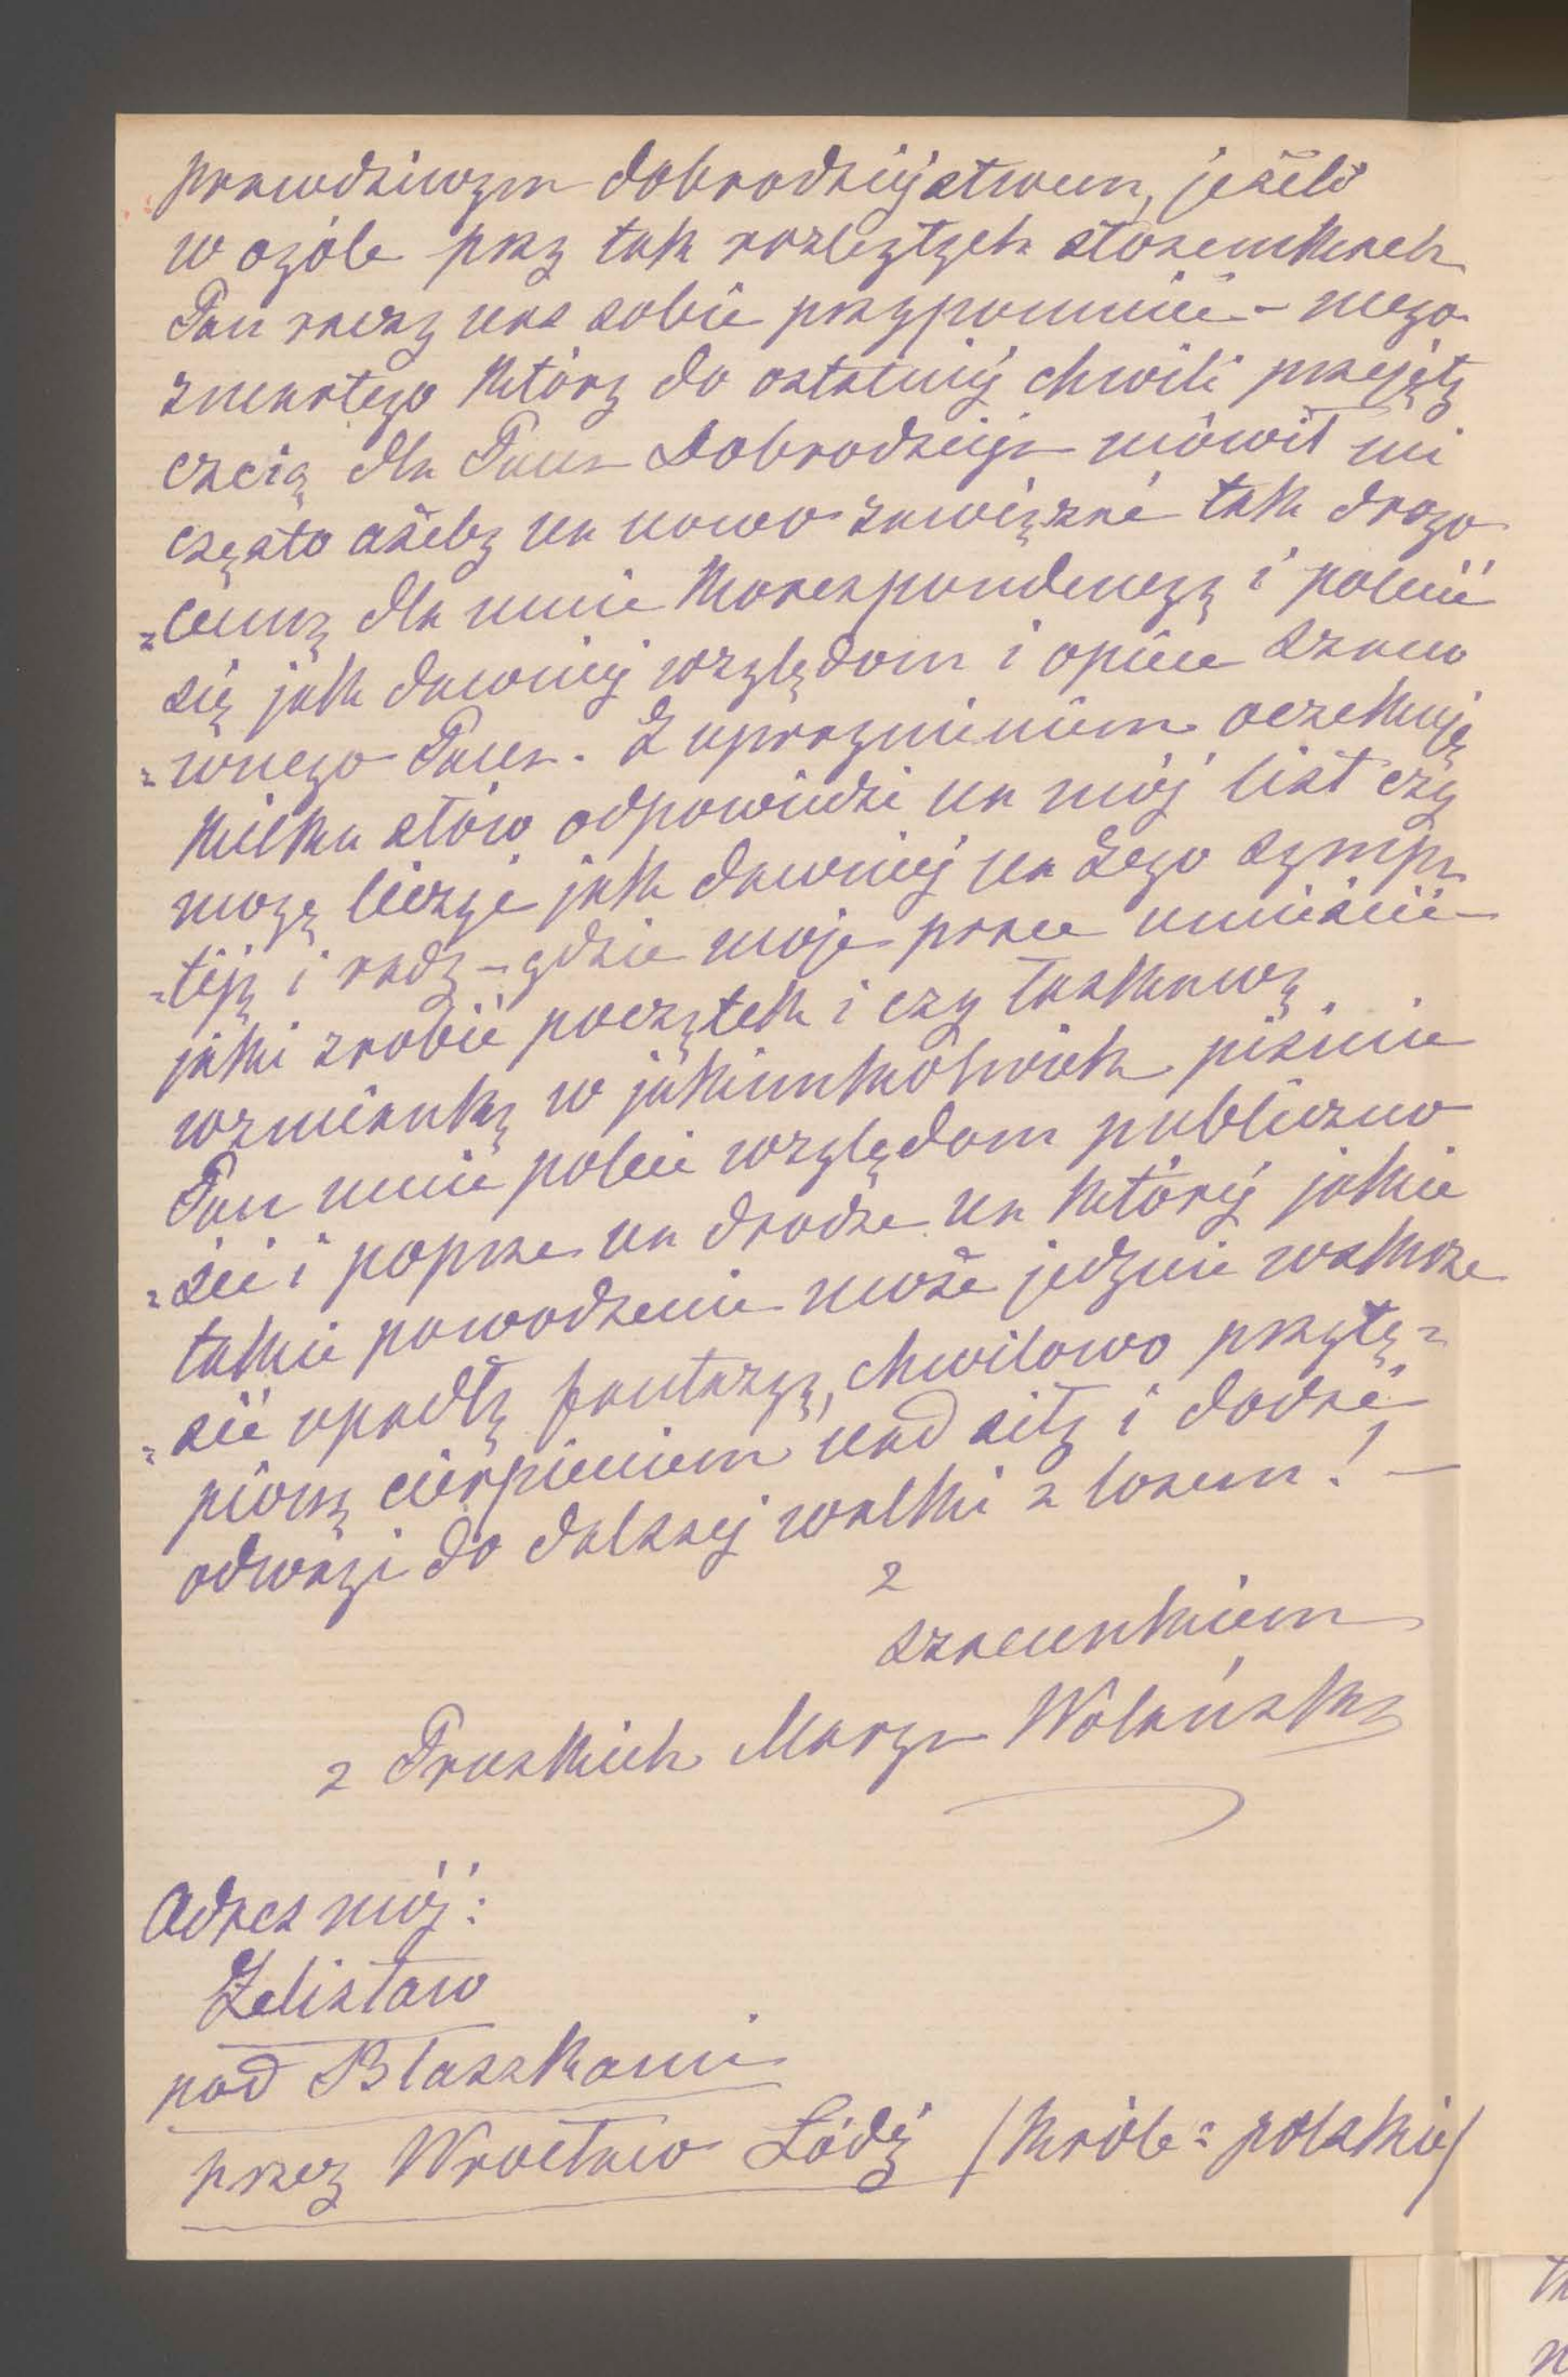 prawdziwym dobrodziejstwem, jeżeli
w ogóle przy tak rozległych stosunkach
Pan raczy nas sobie przypomnieć – mego
zmarłego który do ostatniej chwili przejęty
czcią dla Pana Dobrodzieja mówił mi
często ażeby na nowo zawiązać tak drogo
„cenną dla mnie korespondencyą i polecić
się jak dawniej względom i opiece szano
„wnego Pana. Z upragnieniem oczekuję
kilku słów odpowiedzi na mój list czy
mogę liczyć jak dawniej na Jego sympa
„tiją i radę – gdzie moje prace umieścić
jaki zrobić początek i czy łaskawą
wzmianką w jakimkolwiek piśmie
Pan mnie poleci względom publiczno
„ści i poprze na drodze na której jakie
takie powodzenie może jedynie wskrze
„sić upadłą fantazyą, chwilowo przytę„
pioną cierpieniem nad siłę i dodać
odwagi do dalszej walki z losem! –
z
szacunkiem
z Pruskich Marya Wolańska
Adres mój:
Zelisław
pod Błaszkami
przez Wrocław Łódź (Króle: polskie)